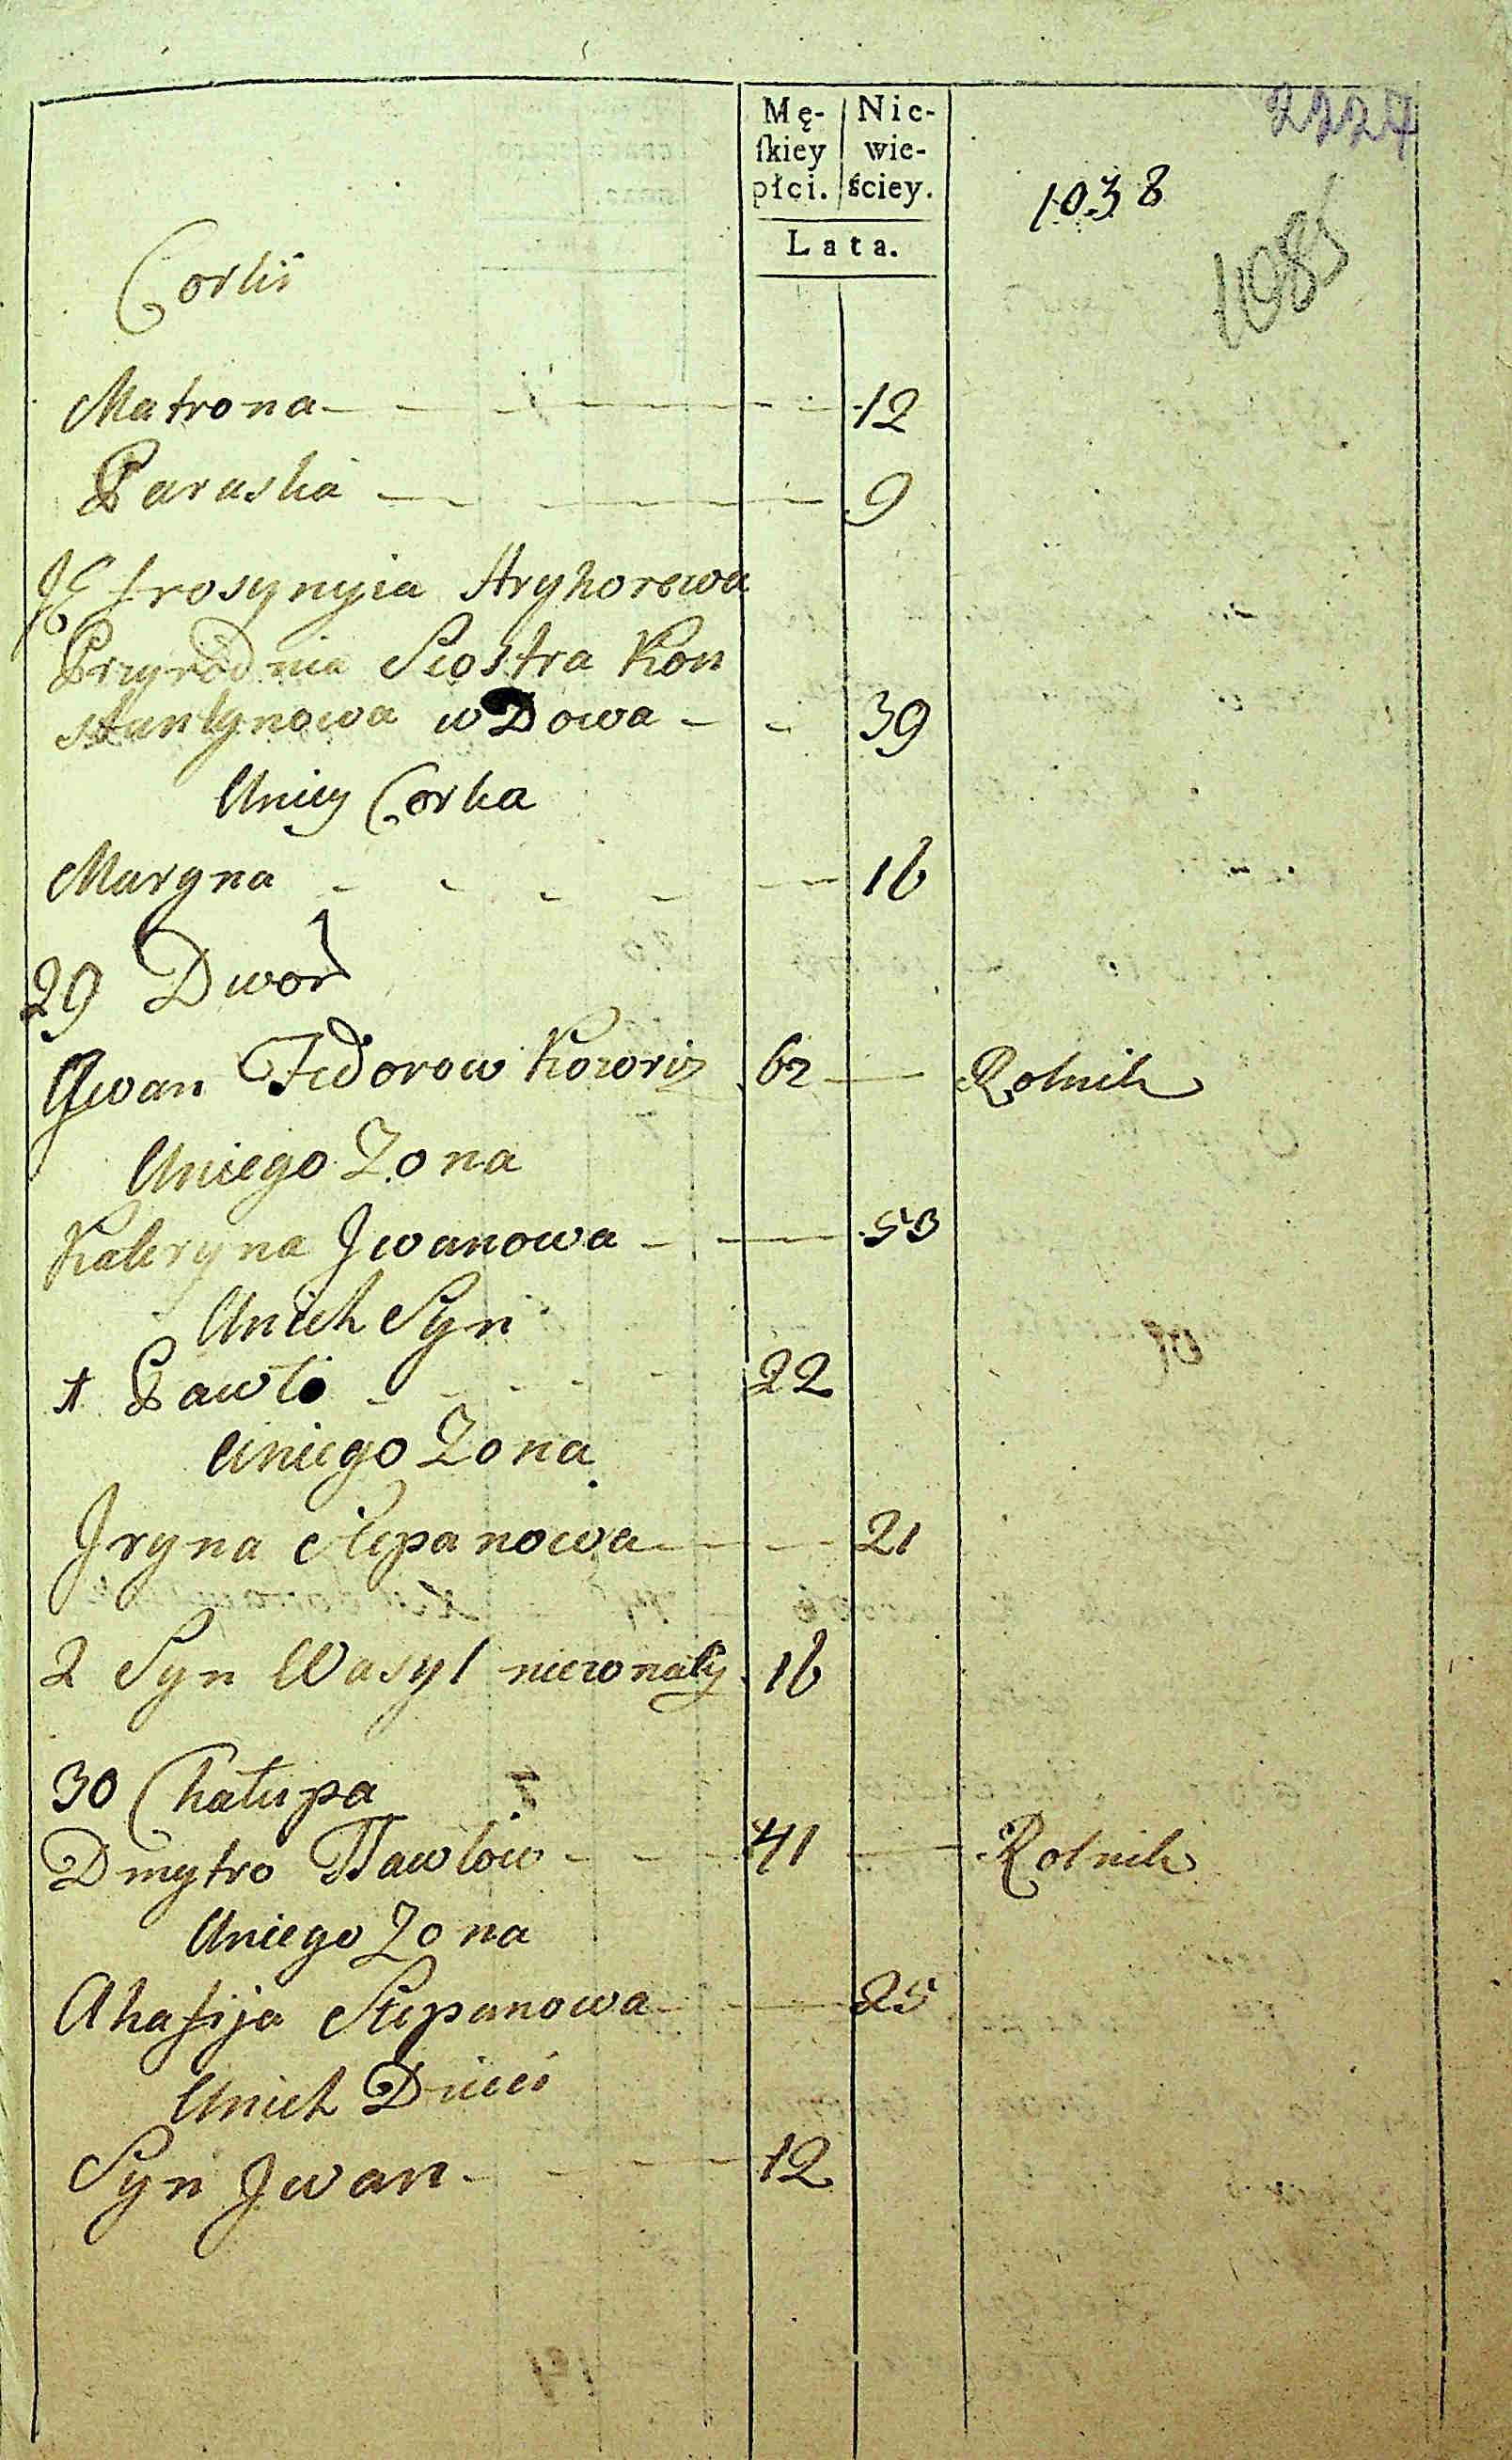 Mę-
ſkiey
płci.
Nie-
wie-
ściey.
Lata.
2227
1038
1085
Corki
Matrona 12
Paraska 9
Jefrosynyia Hryhorowa
Przyrodnia Siostra Kon
stantynowa wDowa 39
Uniey Corka
Maryna 16
29 Dwor
Jwan Fedorow 62 Rolnik
Uniego Zona
Kateryna Jwanowa 53
Unich Syn
1 Pawło 22
Uniego Zona
Jryna Stepanowa 21
2 Syn Wasyl niezonaty 16
30 Chałupa
Dmytro Pawłow 41 Rolnik
Uniego Zona
Ahafija Stepanowa 25
Unich Dzieci
Syn Jwan 12